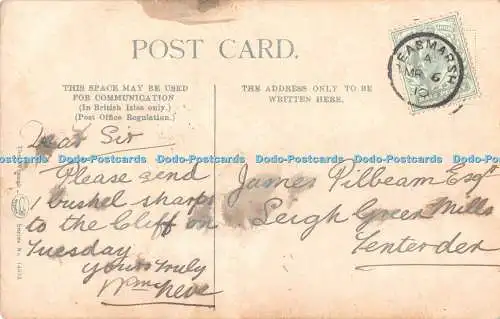 POST CARD.
THIS SPACE MAY BE USED
FOR COMMUNICATION
(In British Isles only.)
(Post Office Regulation.)
THE ADDRESS ONLY TO BE
WRITTEN HERE.
PEASMARSH
A
MR 6
10
Dear Sir
Please send
1 bushel sharps
to the Cliff on
Tuesday
yours truly
Wm Neve
James Pilbeam Esqr
Leigh Green Mills
Tenterden
Dodo-Postcards Dodo-Postcards Dodo-Postcards Dodo-Postcards Dodo-Postcards Dodo-Postcards